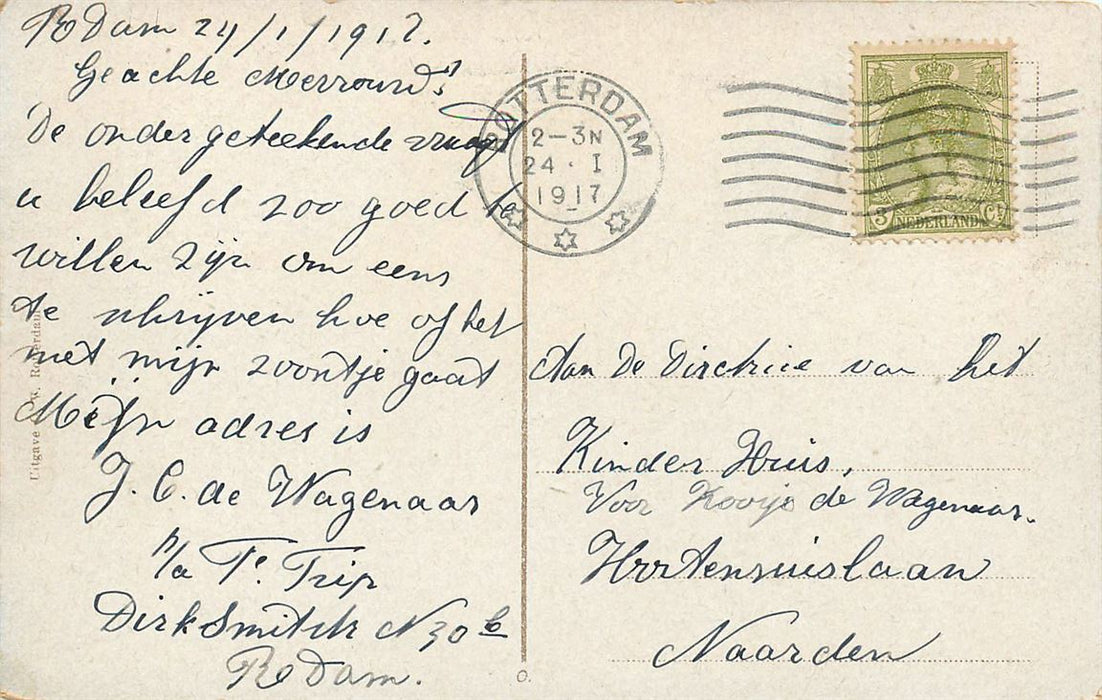 RDam 24/1/1917.
Geachte Mevrouw!
De ondergeteekende vraagt
u beleefd zoo goed te
willen zijn om eens
te schrijven hoe of het
met mijn zoontje gaat
Mijn adres is
J. C. de Wagenaar
p/a Trip
Dirk Smitstr N 30 b
RDam.
Uitgave
ROTTERDAM
2-3N
24 · I
1917
3 NEDERLAND Ct
Aan De Directrice van het
Kinder Huis,
Voor Kooije de Wagenaar.
Hortensiuslaan
Naarden
O.